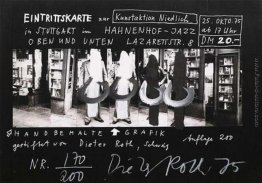 EINTRITTSKARTE zur Kunstaktion Niedlich
in STUTTGART im HAHNENHOF-JAZZ
OBEN UND UNTEN LAZARETTSTR. 8
25. OKTO. 75
ab 17 Uhr
DM 20.-
HANDBEMALTE GRAFIK
gestiftet von Dieter Roth, Auflage 200
NR. 170/200 Dieter Roth 75